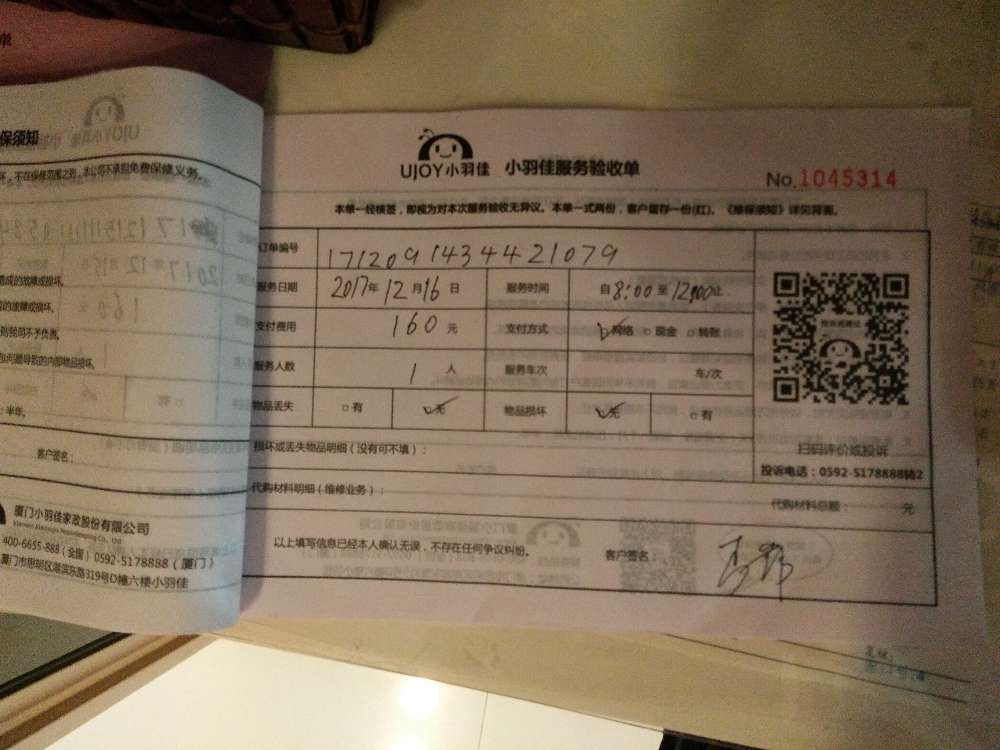 UJOY小羽佳 小羽佳服务验收单
No.1045314
本单一经核签，即视为对本次服务验收无异议。本单一式两份，客户留存一份(红)。《维保须知》详见背面。
订单编号 1712091434421079
服务日期 2017年12月16日 服务时间 自8:00至12:00止
支付费用 160元 支付方式 ☑网络 □现金 □转账
服务人数 1人 服务车次 车/次
物品丢失 □有 ☑无 物品损坏 ☑无 □有
损坏或丢失物品明细（没有可不填）：
扫码评价或投诉
投诉电话：0592-5178888转2
代购材料明细（维修业务）：
代购材料总额： 元
以上填写信息已经本人确认无误，不存在任何争议纠纷。
客户签名：
单
保须知
不在保修范围之列，本公司不承担免费保修义务。
造成的故障或损坏。
的故障或损坏。
则我司不予负责。
问题导致的内部物品损坏。
：半年。
客户签名：
厦门小羽佳家政股份有限公司
400-6655-888（全国）0592-5178888（厦门）
厦门市思明区湖滨东路319号D幢六楼小羽佳